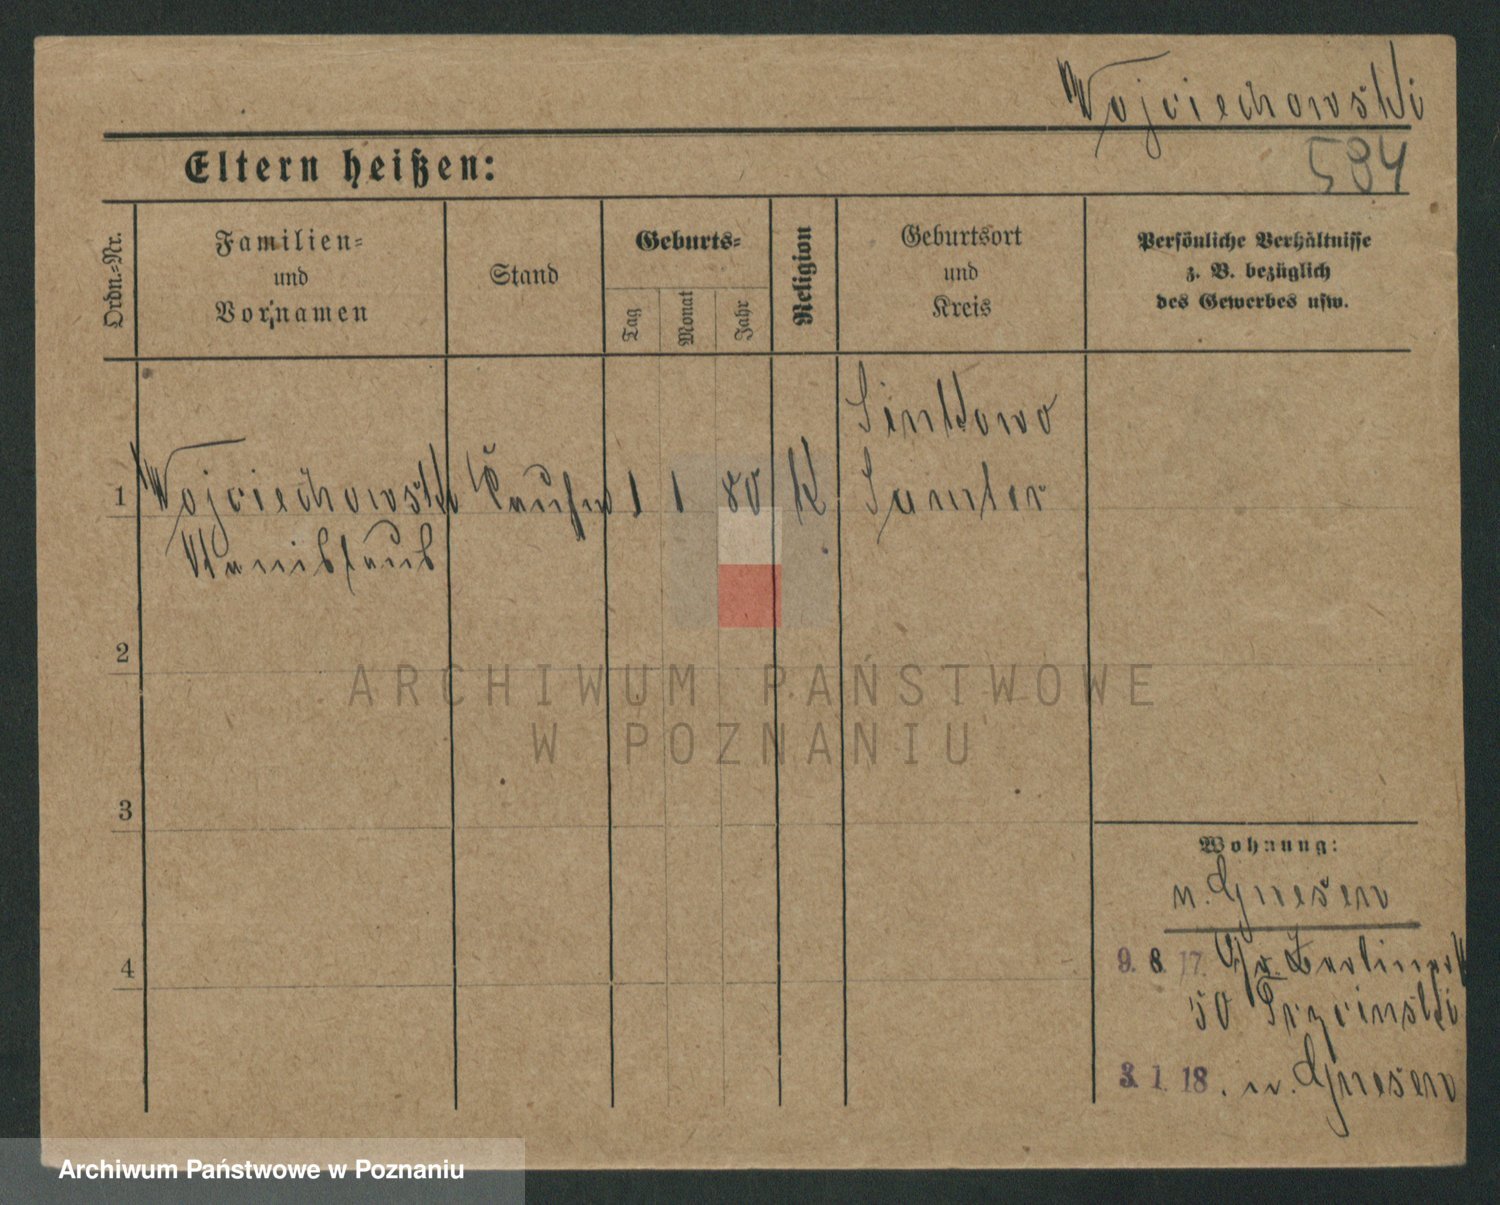 Wojciechowski
584
Eltern heißen:
Ordn.-Nr.
Familien-
und
Vornamen
Stand
Geburts-
Tag
Monat
Jahr
Religion
Geburtsort
und
Kreis
Persönliche Verhältnisse
z. B. bezüglich
des Gewerbes usw.
Sinkowo
1 Wojciechowski Kaufm 1 1 80 K Samter
Stanislaus
2
ARCHIWUM PAŃSTWOWE
W POZNANIU
3
Wohnung:
n. Gnesen
4
9. 8. 17. Gr. Berliner
50 Trzcinski
3. 1. 18. n. Gnesen
Archiwum Państwowe w Poznaniu